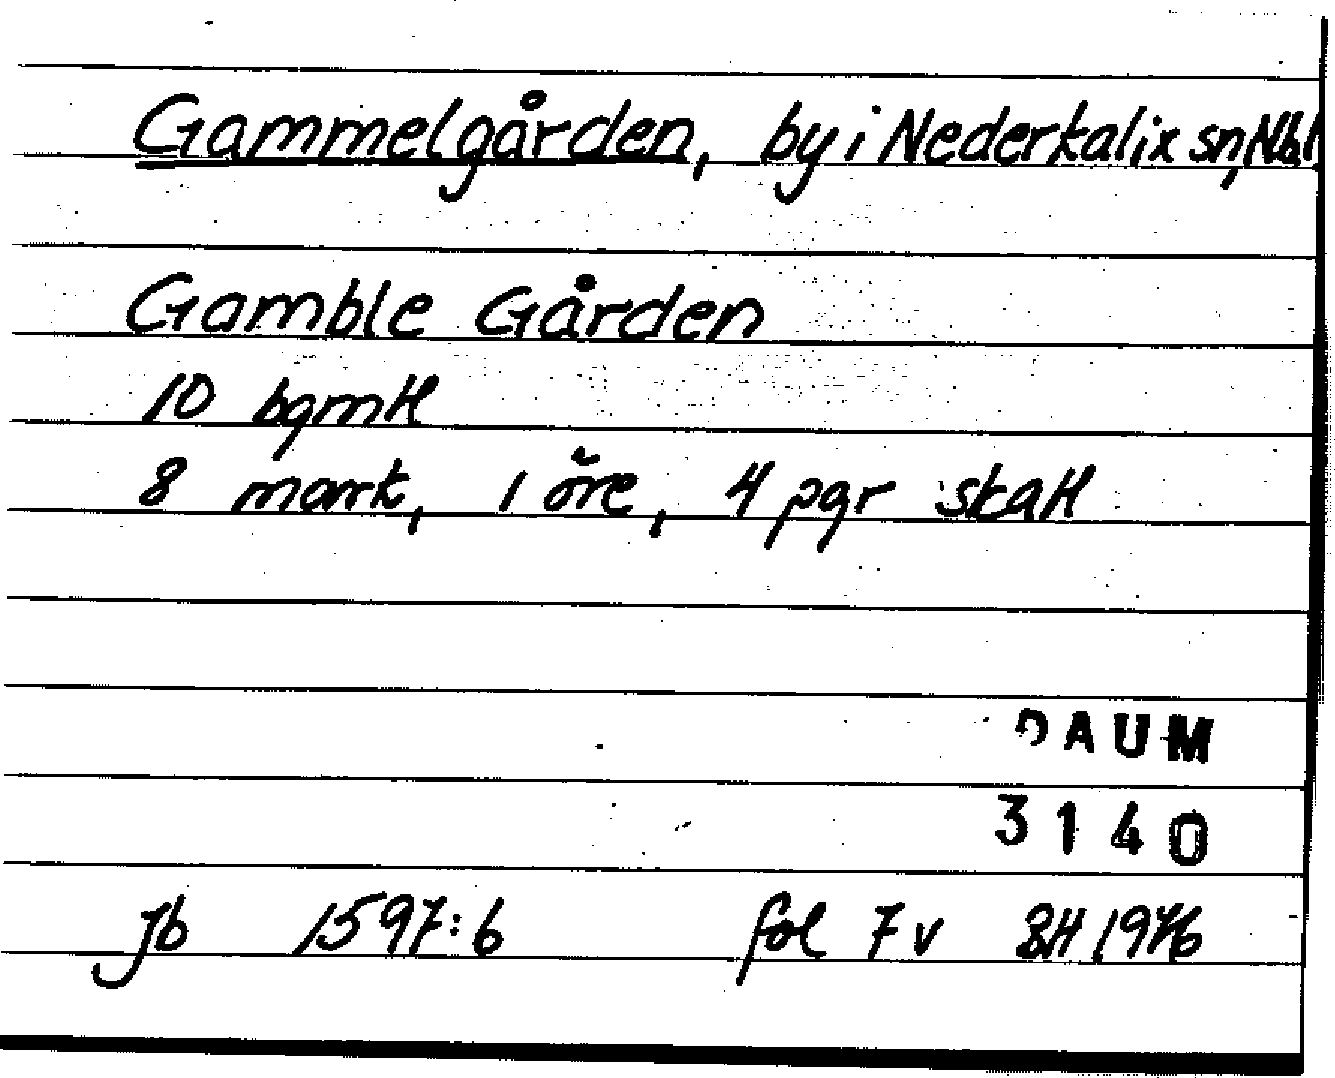 Gammelgården, by i Nederkalix sn, Nbl
Gamble Gården
10 bgmtl
8 mark, 1 öre, 4 pgr skatt
DAUM
3140
Jb 1597:6 fol 7v BH 1976